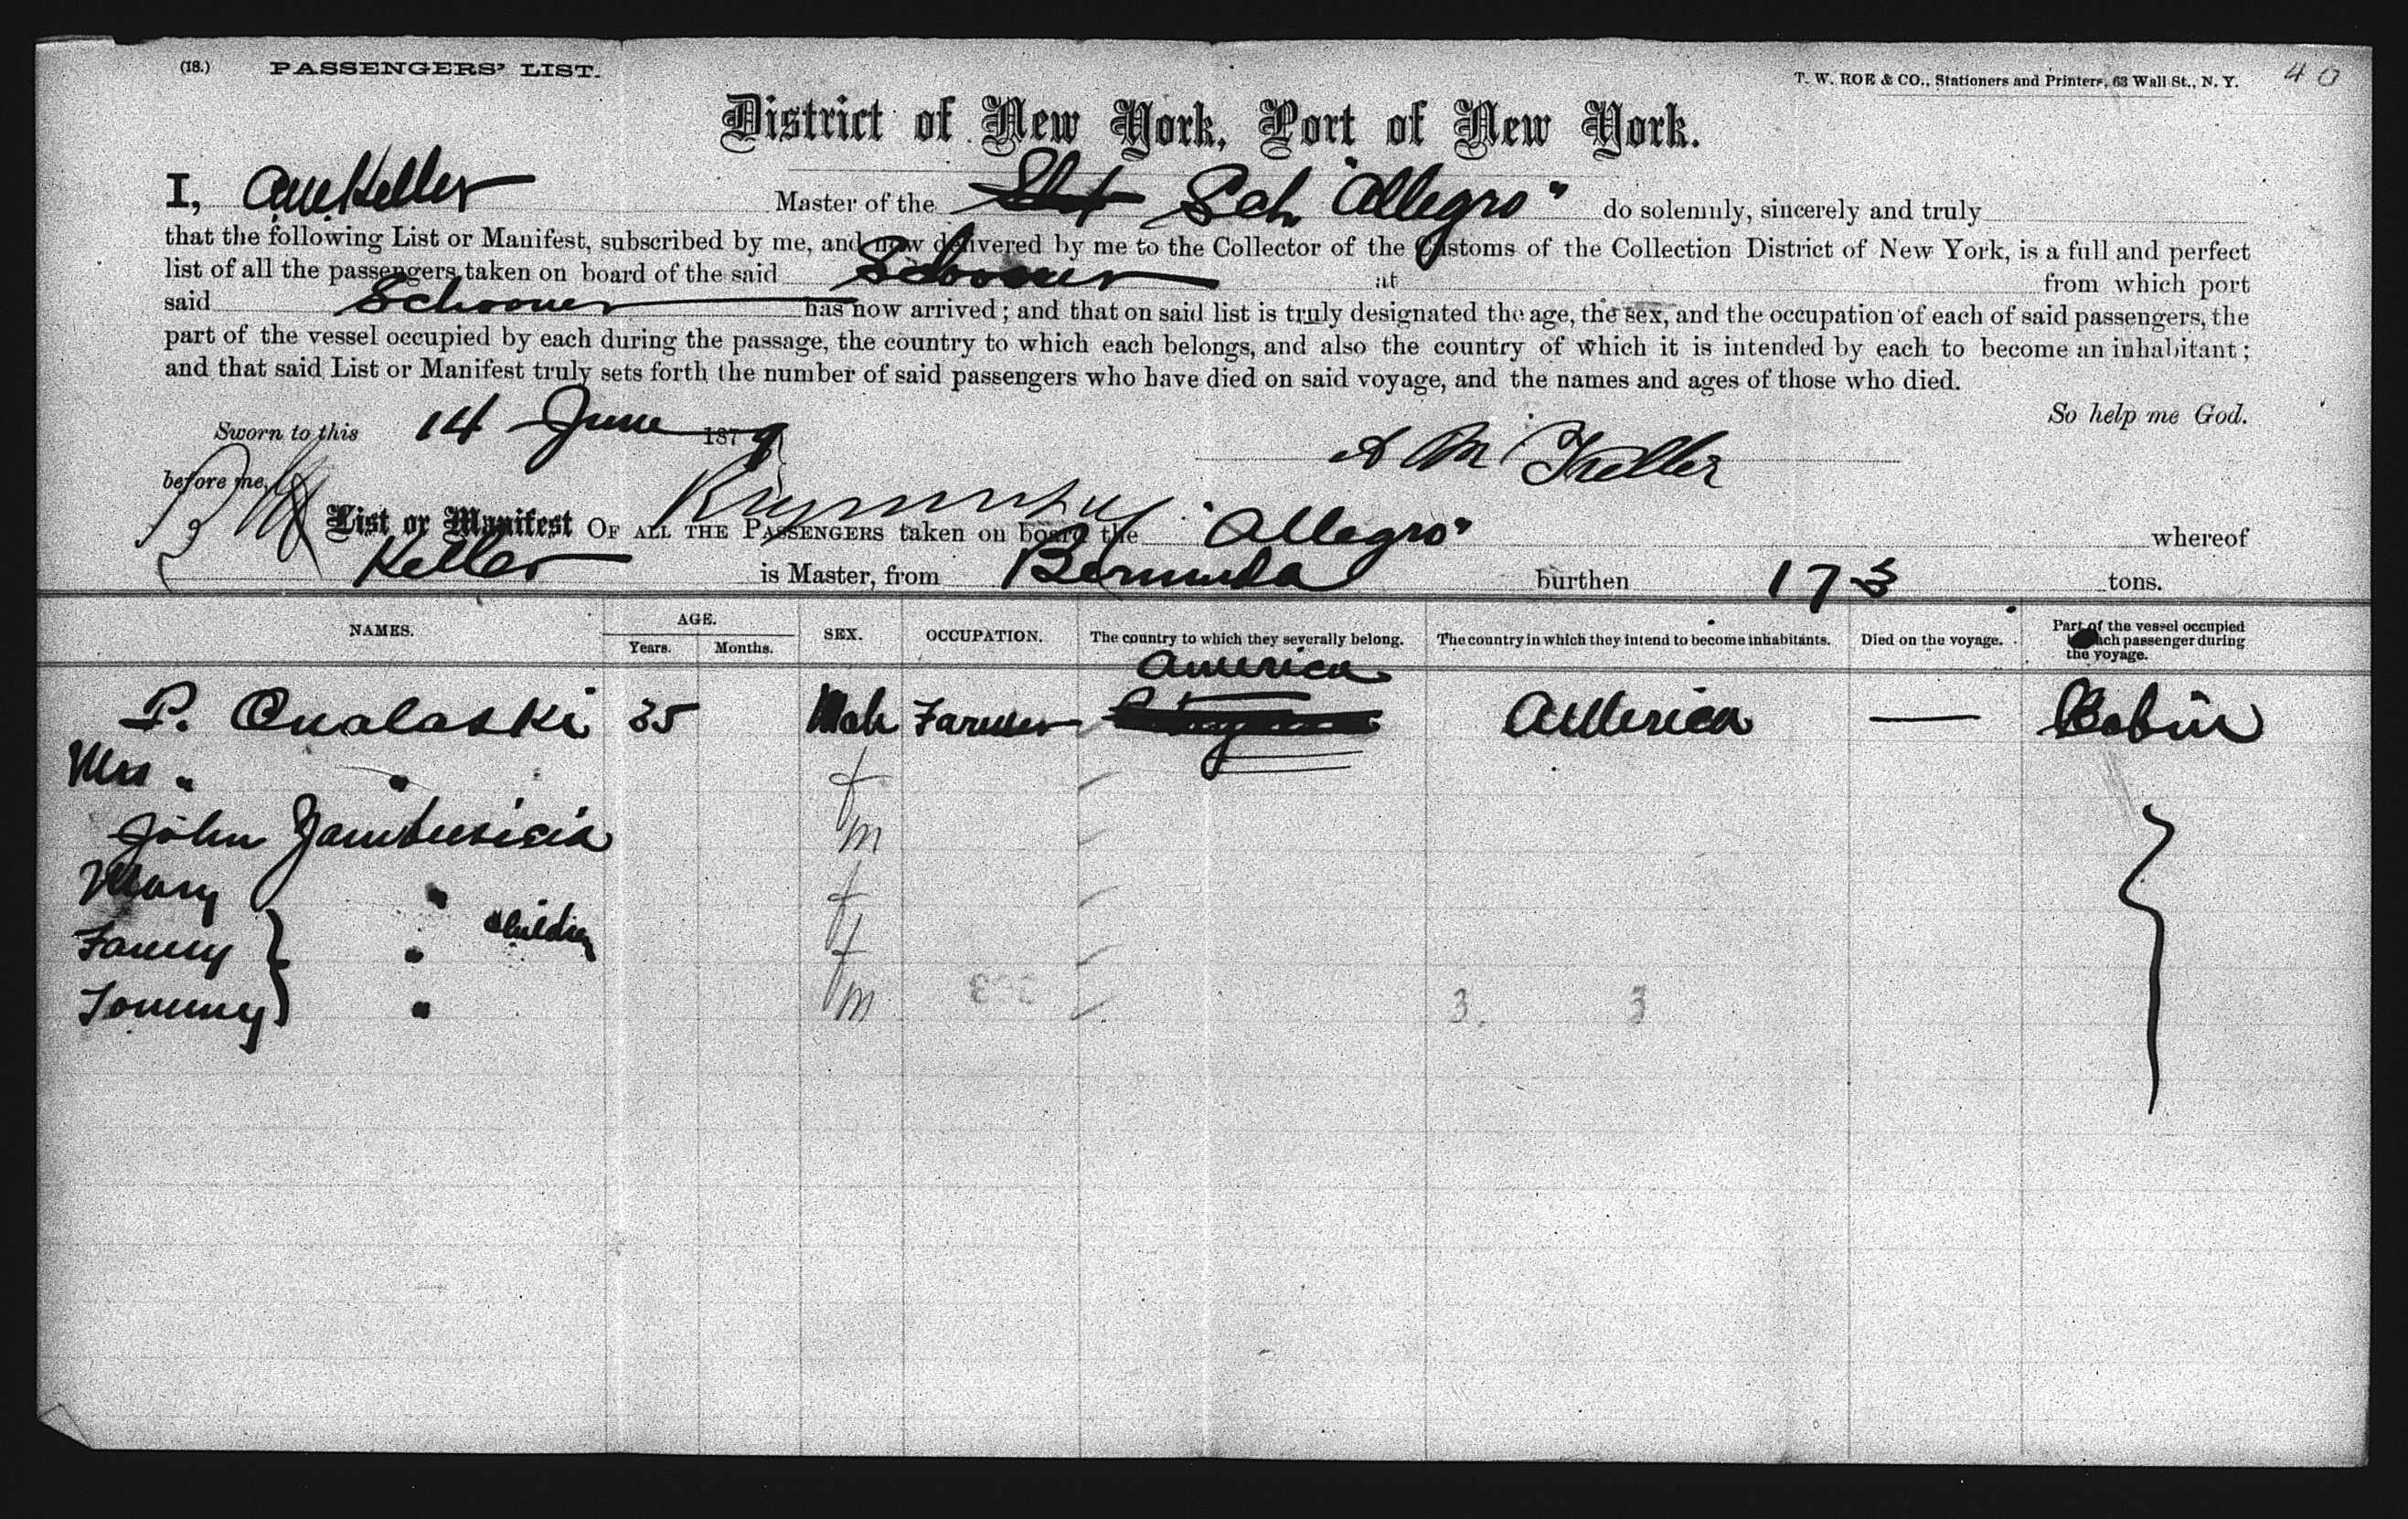 (18.) PASSENGERS' LIST.
T. W. ROE & CO., Stationers and Printers, 63 Wall St., N. Y. 40
District of New York, Port of New York.
I, AM Keller Master of the Sch "Allegro" do solemnly, sincerely and truly
that the following List or Manifest, subscribed by me, and now delivered by me to the Collector of the Customs of the Collection District of New York, is a full and perfect
list of all the passengers taken on board of the said Schooner at from which port
said Schooner has now arrived; and that on said list is truly designated the age, the sex, and the occupation of each of said passengers, the
part of the vessel occupied by each during the passage, the country to which each belongs, and also the country of which it is intended by each to become an inhabitant;
and that said List or Manifest truly sets forth the number of said passengers who have died on said voyage, and the names and ages of those who died.
So help me God.
Sworn to this 14 June 1879
A M Keller
before me,
List or Manifest OF ALL THE PASSENGERS taken on board the "Allegro" whereof
Keller is Master, from Bermuda burthen 173 tons.
NAMES. AGE. Years. Months. SEX. OCCUPATION. The country to which they severally belong. The country in which they intend to become inhabitants. Died on the voyage. Part of the vessel occupied by each passenger during the voyage.
America
P. Oualaski 35 Male Farmer America — Cabin
Mrs " " f
John m
Mary " f
Fanny } " children f
Tommy } " m 3. 3